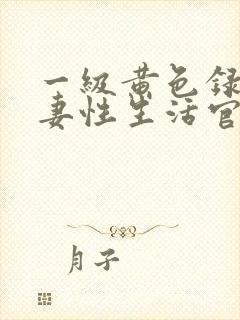 一級黄色録
妻性生活官
月子